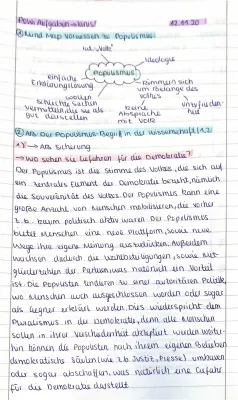 12.11.20
① Mind Map Vorwissen zu Populismus
"wir Volk"
Ideologie
Populismus
einfache
Erklärungslösung
kümmern sich
um Belange des
Volkes
wollen
schlechte Sachen
vermitteln, die sie als
gut darstellen
keine
Absprache
mit Volk
unzufrieden
② AB: Der Populismus-Begriff in der Wissenschaft
→ AB Sicherung
→ Wo sehen Sie Gefahren für die Demokratie?
Der Populismus ist die Stimme des Volkes, die sich auf
ein zentrales Element der Demokratie bezieht, nämlich
die Souveränität des Volkes. Der Populismus kann eine
große Anzahl von Menschen mobilisieren, die vorher
z.B. kaum politisch aktiv waren. Der Populismus
bietet Menschen eine neue Plattform, sowie neue
Wege ihre eigene Meinung auszudrücken. Außerdem
wachsen dadurch die Wahlbeteiligungen, sowie Mit-
gliederzahlen der Parteien, was natürlich ein Vorteil
ist. Die Populisten tendieren zu einer autoritären Politik,
wo Menschen auch ausgeschlossen werden oder sogar
als Gegner erklärt werden. Dies widerspricht dem
Pluralismus in der Demokratie, denn alle Menschen
sollen in ihrer Verschiedenheit akzeptiert werden. Weiter-
hin können die Populisten nach ihrem eigenen Belieben
demokratische Säulen (wie z.B. Justiz, Presse) umbauen
oder sogar abschaffen, was natürlich eine Gefahr
für die Demokratie darstellt.